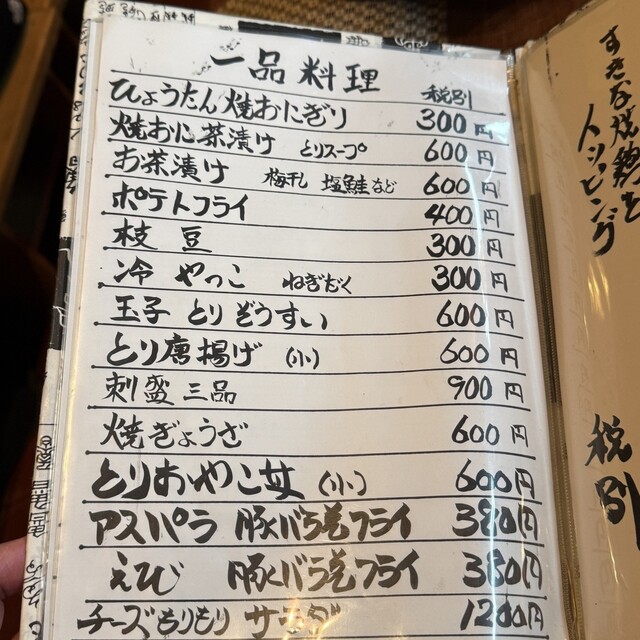 一品料理
税別
ひょうたん焼おにぎり 300円
焼おに茶漬け とりスープ 600円
お茶漬け 梅干し 塩鮭など 600円
ポテトフライ 400円
枝豆 300円
冷やっこ ねぎだく 300円
玉子とりぞうすい 600円
とり唐揚げ (小) 600円
刺盛三品 900円
焼ぎょうざ 600円
とりおやこ丼 (小) 600円
アスパラ豚バラ巻フライ 380円
えび 豚バラ巻フライ 380円
チーズもりもりサラダ 1200円
すきな焼鶏を
トッピング
税別